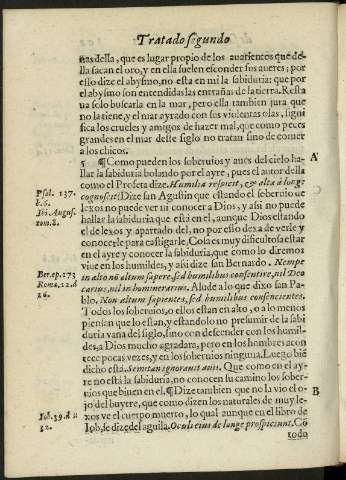 Tratado segundo
ñas della, que es lugar propio de los auarientos que de-
lla sacan el oro, y en ella suelen esconder sus aueres; por
esso dize el abysmo, no esta en mi la sabiduria: que por
el abysmo son entendidas las entrañas de la tierra. Resta
ua solo buscarla en la mar, pero ella tambien jura que
no la tiene, y el mar ayrado con sus violentas olas, signi
fica los crueles y amigos de hazer mal, que como peces
grandes en el mar deste siglo no tratan sino de comer
a los chicos.
5 ¶Como pueden los soberuios y aues del cielo ha- A
llar la sabiduria bolando por el ayre, pues el autor della
como el Profeta dize. Humilia respicit, & alta à longe
Psal. 137.
b. 6.
Ibi Augus.
tom. 8.
cognoscit? Dize san Agustin que estando el soberuio de
lexos no puede ver ni conocer a Dios, y assi no puede
hallar la sabiduria que está en el, aunque Dios estando
el de lexos y apartado del, no por esso dexa de verle y
conocerle para castigarle, Cosa es muy dificultosa estar
en el ayre y conocer la sabiduria, que como lo diremos
viue en los humildes, y assi dize san Bernardo. Nempe
Ber. ep. 173
Roma. 12. d
16.
in alto nō altum sapere, sed humilibus consentire, nil Deo
carius, nil in hominerarius. Alude a lo que dixo san Pa-
blo. Non altum sapientes, sed humilibus consencientes.
Todos los soberuios, o ellos estan en alto, o a lo menos
piensan que lo estan, y estando lo no presumir de la sabi
duria vana del siglo, sino condescender con los humil-
des, a Dios mucho agradara, pero en los hombres acon
tece pocas vezes, y en los soberuios ninguna. Luego biē
dicho está. Semitam ignorauit auis. Que como en el ay-
re no está la sabiduria, no conocen su camino los sober-
uios que biuen en el. ¶Dize tambien que no la vio el o- B
jo del buytre, que como dizen los naturales de muy le-
Iob. 39. d 2
32.
xos ve el cuerpo muerto, lo qual aunque en el libro de
Iob, se dize del aguila. Oculi eius de longe prospiciunt. Cō
todo